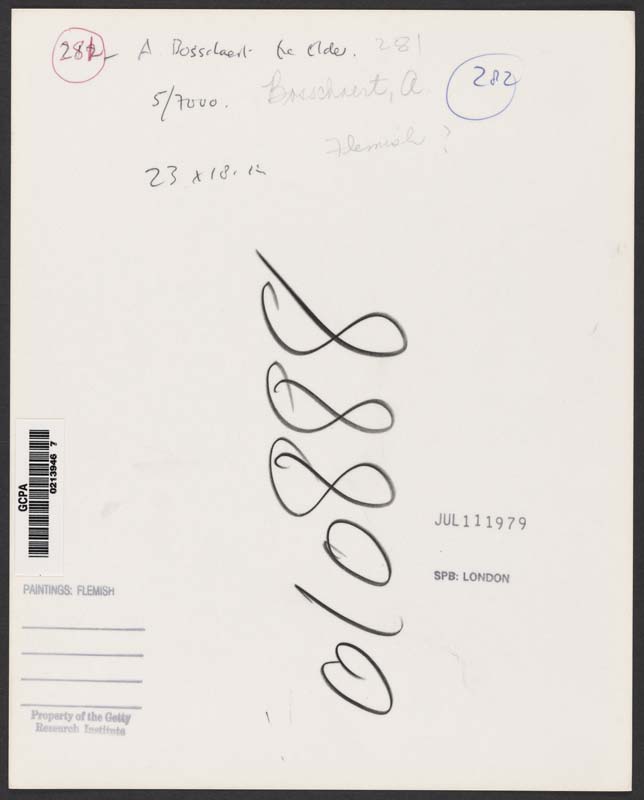 282 A Bosschaert the Elder. 281
5/7000. Bosschaert, A. 282
Flemish?
23 x 18. in
010888
GCPA
0213946 7
JUL 11 1979
SPB: LONDON
PAINTINGS: FLEMISH
Property of the Getty
Research Institute